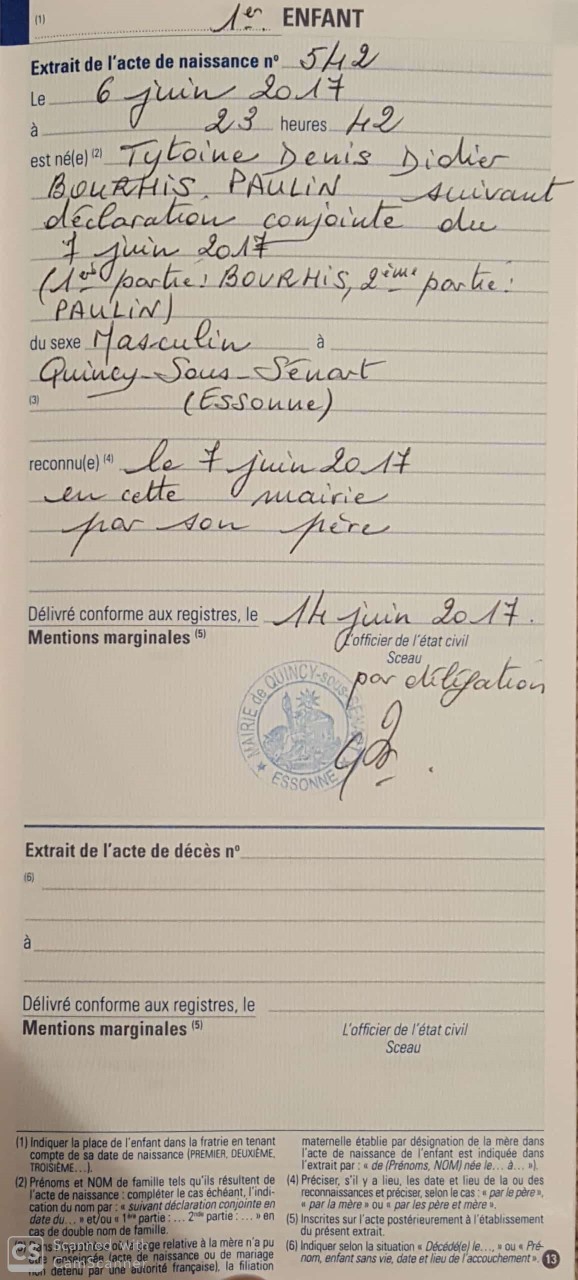 (1) 1er ENFANT
Extrait de l'acte de naissance n° 542
Le 6 juin 2017
à 23 heures 42
est né(e) (2) Tytoine Denis Didier
BOURHIS PAULIN suivant
déclaration conjointe du
7 juin 2017
(1ère partie : BOURHIS, 2ème partie :
PAULIN)
du sexe Masculin à
Quincy-Sous-Sénart
(3) (Essonne)
reconnu(e) (4) le 7 juin 2017
en cette mairie
par son père
Délivré conforme aux registres, le 14 juin 2017.
Mentions marginales (5) L'officier de l'état civil
Sceau
par délégation
MAIRIE de QUINCY-sous-SÉNART
★ ESSONNE ★
Extrait de l'acte de décès n°
(6)
à
Délivré conforme aux registres, le
Mentions marginales (5) L'officier de l'état civil
Sceau
(1) Indiquer la place de l'enfant dans la fratrie en tenant
compte de sa date de naissance (PREMIER, DEUXIÈME,
TROISIÈME...).
(2) Prénoms et NOM de famille tels qu'ils résultent de
l'acte de naissance : compléter le cas échéant, l'indi-
cation du nom par : « suivant déclaration conjointe en
date du... » et/ou « 1ère partie : ... 2nde partie : ... » en
cas de double nom de famille.
(3) Dans le cas où la filiation relative à la mère n'a pu
être renseignée (acte de naissance ou de mariage
non détenu par une autorité française), la filiation
maternelle établie par désignation de la mère dans
l'acte de naissance de l'enfant est indiquée dans
l'extrait par : « de (Prénoms, NOM) née le... à... »).
(4) Préciser, s'il y a lieu, les dates et lieu de la ou des
reconnaissances et préciser, selon le cas : « par le père »,
« par la mère » ou « par les père et mère ».
(5) Inscrites sur l'acte postérieurement à l'établissement
du présent extrait.
(6) Indiquer selon la situation « Décédé(e) le..., » ou « Pré-
nom, enfant sans vie, date et lieu de l'accouchement ».
13
CS Scanned with
CamScanner